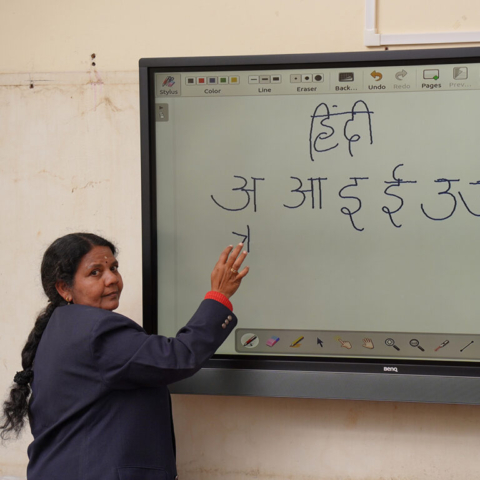 Stylus Color Line Eraser Back... Undo Redo Pages Prev...
हिंदी
अ आ इ ई उ
BenQ